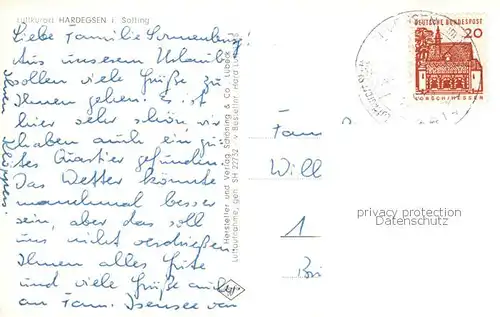 Luftkurort HARDEGSEN i. Solling
Liebe Familie Sonnenberg!
Aus unserem Urlaub
sollen viele Grüße zu
Ihnen gehen. Es ist
hier sehr schön, wir
haben auch ein gu-
tes Quartier gefunden.
Das Wetter könnte
manchmal besser
sein, aber das soll
uns nicht verdrießen
Ihnen alles Gute
und viele Grüße auch
an Fam. Isensee von
Ihren
Hersteller und Verlag Schöning & Co · Lübeck
Luftaufnahme, gen. SH 22732 · Bestellnr. Hard
DEUTSCHE BUNDESPOST
20
LORSCH/HESSEN
Fam
Will
1
Bri
privacy protection
Datenschutz